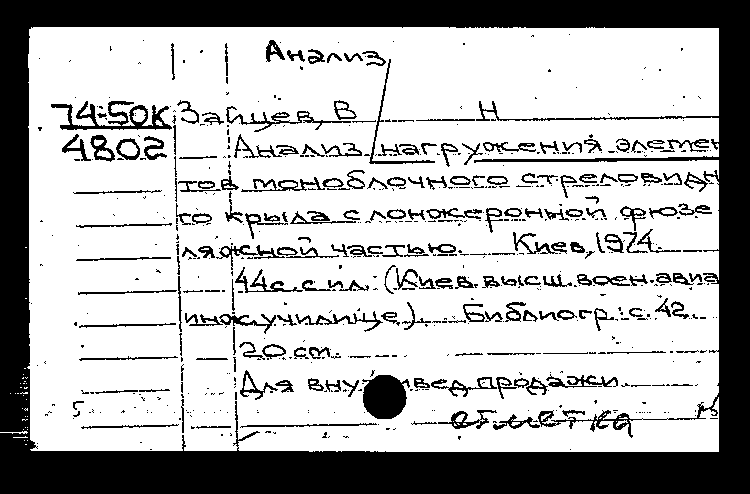 Анализ
74-50К Зайцев, В Н
4802 Анализ нагружения элемен
тов моноблочного стреловидн
го крыла с лонжеронной фюзе
ляжной частью. Киев, 1974.
44с. с ил. (Киев. высш. воен. авиа
инж. училище). Библиогр.: с. 42.
20 см.
Для вну ивед продажи.
5 отметка